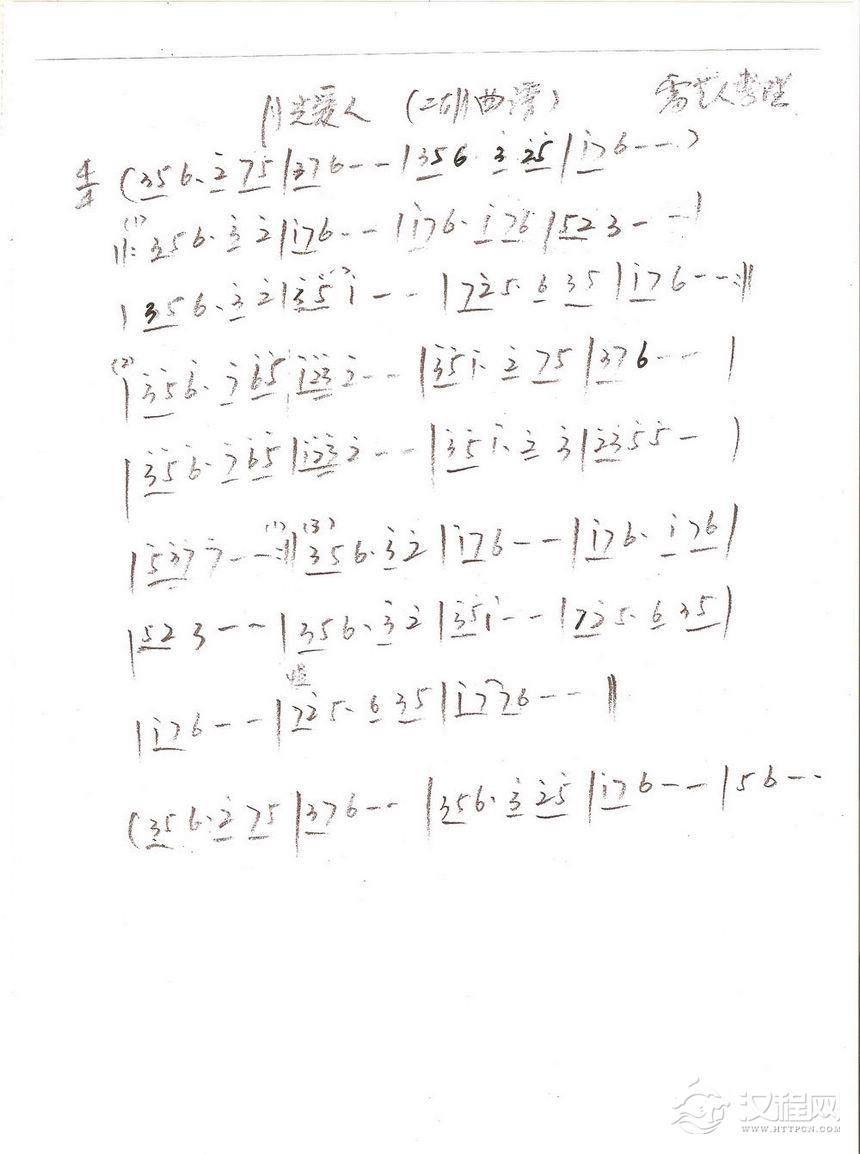 月光爱人 (二胡曲谱)
4/4 (356·i̇ 2̇75|376--|356·3̇ 2̇5̇|i̇76--)
(1)
‖:356·3̇2̇|i̇76--|i̇76·i̇76|523--|
|356·3̇2̇|3̇5̇i̇--|72̇5·635|i̇76--:‖
(2)
|3̇5̇6̇·7̇6̇5̇|i̇2̇3̇2̇--|3̇5̇i̇·2̇75|376--|
|3̇5̇6̇·7̇6̇5̇|i̇2̇3̇2̇--|3̇5̇i̇·2̇3̇|2̇3̇5̇5̇-|
(1) (3)
|5̇3̇7̇7̇--:‖356·3̇2̇|i̇76--|i̇76·i̇76|
|523--|356·3̇2̇|3̇5̇i̇--|72̇5·635|
慢
|i̇76--|72̇5·635|i̇776--‖
(356·2̇75|376--|356·3̇2̇5̇|i̇76--|56--
汉程网
WWW.HTTPCN.COM